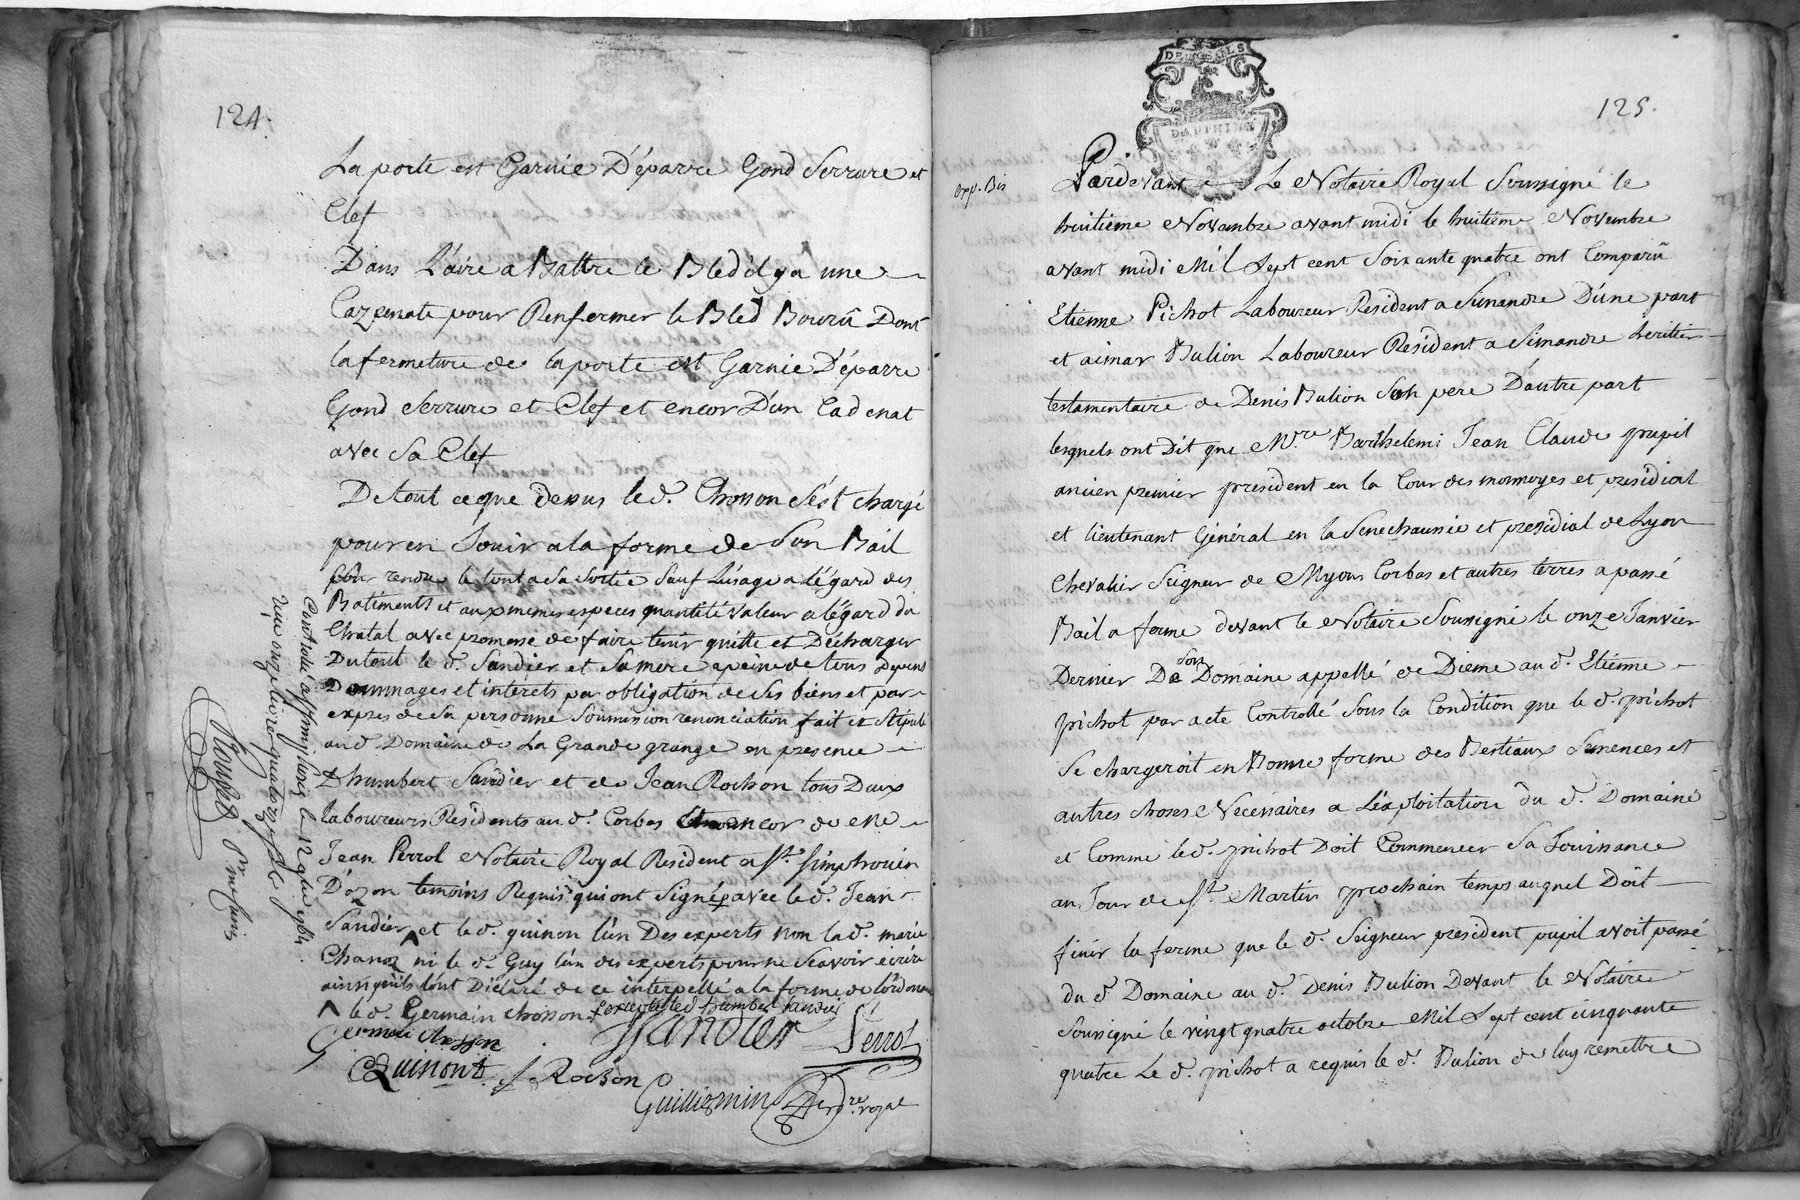 124.
La porte est Garnie D'éparre Gond Serrure et
Clef
Dans L'aire a Battre le Bled il y a une
pour Renfermer le Bled Bourû Dont
la fermeture de la porte est Garnie D'éparre
Gond Serrure et Clef et encor D'un Cadenat
avec Sa Clef
De tout ce que dessus le d. Chosson s'est chargé
pour en Jouir a la forme de Son Bail
pour rendre le tout a Sa Sortie Sauf L'usage a L'égard des
Batiments et aux memes especes quantité valeur a légard du
Chatal avec promesse de faire tenir quitte et Décharger
Du tout le d. Sandier et Sa mere a peine de tous depens
Dommages et interets par obligation de Ses biens et par
expres de Sa personne Soumission renonciation fait et Stipulé
au d. Domaine de La Grande grange en presence
D'humbert Sandier et de Jean Rochon tous Deux
Laboureurs Residents au d. Corbas et encor de Me
Jean Perrol Notaire Royal Resident a St. Simphorien
D'ozon temoins Requis qui ont Signé avec le d. Jean
Sandier et le d. quinon l'un Des experts non la d. marie
Chanoz ni le d. Guy l'un des experts pour ne Scavoir écrire
ainsi qu'ils l'ont Déclaré de ce interpellé a la forme de l'ordonn
le d. Germain Chosson excepté led humbert Sandier
Germain Chosson
JSandier
Perrol
Quinont
J Rochon
Guillermin
No.re royal
Controllé a St Simphorien le 12 9bre 1764
Reçu onze livres quatorze sols
125.
DEUX SOLS
DAUPHINÉ
exp. Bis
Pardevant Le Notaire Royal Soussigné le
huitieme Novembre avant midi le huitieme Novembre
avant midi Mil Sept cent Soixante quatre ont Comparû
Etienne Pichot Laboureur Resident a Simandre D'une part
et aimar Bulion Laboureur Resident a Simandre heritier
testamentaire de Denis Bulion Son pere D'autre part
lesquels ont Dit que M.re Barthelemi Jean Claude pupil
ancien premier president en la Cour des monnoyes et presidial
et lieutenant Général en la Senechaussée et presidial de Lyon
Chevalier Seigneur de Myons Corbas et autres terres a passé
Bail a ferme devant le Notaire Soussigné le onze Janvier
Dernier De son Domaine appellé de Dieme au d. Etienne
pichot par acte Controllé Sous la Condition que le d. pichot
Se chargeroit en Bonne forme des Bestiaux Semences et
autres choses Necessaires a L'exploitation du d. Domaine
et Comme le d. pichot Doit Commencer Sa Jouissance
au Jour de St. Martin prochain temps auquel Doit
finir la ferme que le d. Seigneur president pupil avoit passé
du d. Domaine au d. Denis Bulion Devant le Notaire
Soussigné le vingt quatre octobre Mil Sept cent cinquante
quatre Le d. pichot a requis le d. Bulion de luy remettre